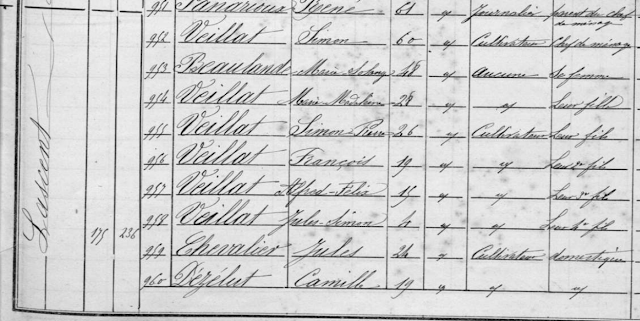 951 René 61 〃 Journalier parent du chef de ménage
952 Veillat Simon 60 〃 Cultivateur Chef de ménage
953 Beaulande Marie 48 〃 Aucune Sa femme
954 Veillat Marie Madeleine 28 〃 〃 Leur fille
955 Veillat Simon-Pierre 26 〃 Cultivateur Leur fils
956 Veillat François 19 〃 〃 Leur 2e fils
957 Veillat Alfred-Félix 15 〃 〃 Leur 3e fils
Lascent 175 236 958 Veillat Jules-Simon 〃 〃 Leur fils
959 Chevalier Jules 24 〃 Cultivateur domestique
960 Dézélut Camille 19 〃 〃 〃